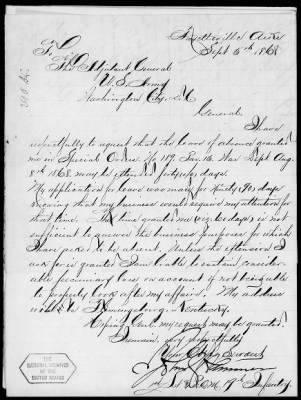 Fayetteville Arks
Sept 5th 1868
To
The Adjutant General
U.S. Army
Washington City D.C.
General
I have
respectfully to request that the leave of absence granted
me in Special Orders No 187, Par. 18. War Dept Aug.
8th 1868 may be extended forty days.
My application for leave was made for Ninety 90 days
knowing that my business would require my attention for
that time. The time granted me days is not
sufficient to answer the business purposes for which
I have asked to be absent. Unless the extension I
ask for is granted I am liable to sustain consider-
able pecuniary loss on account of not being able
to properly look after my affairs. My address
will be Flemingsburg Kentucky.
Hoping Genl. my request may be granted.
I remain, very respectfully
Your Obdt. Servant
19th Infantry
THE
NATIONAL ARCHIVES
OF THE
UNITED STATES